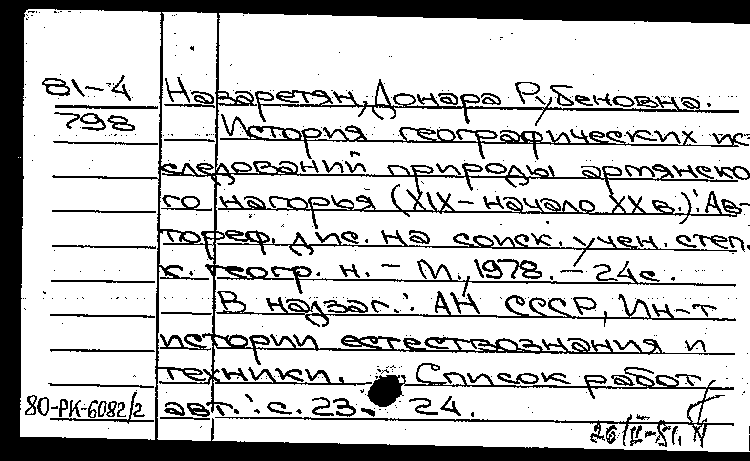 81-4 Назаретян, Донара Рубеновна.
798 История географических ис-
следований природы армянско-
го нагорья (XIX - начало XX в.): Ав-
тореф. дис. на соиск. учен. степ.
к. геогр. н. - М., 1978. - 24с.
В надзаг.: АН СССР, Ин-т
истории естествознания и
техники. Список работ
80-РК-6082/2 авт.: с. 23-24.
26/II-81.